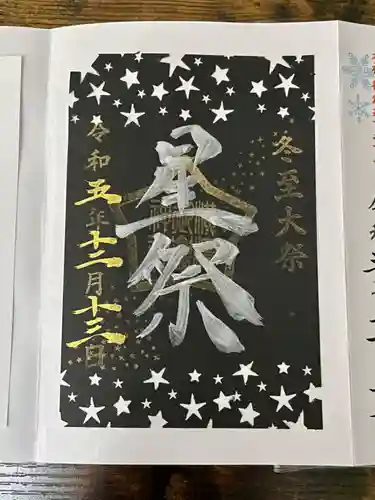 冬至大祭
星祭
令和五年十二月十三日